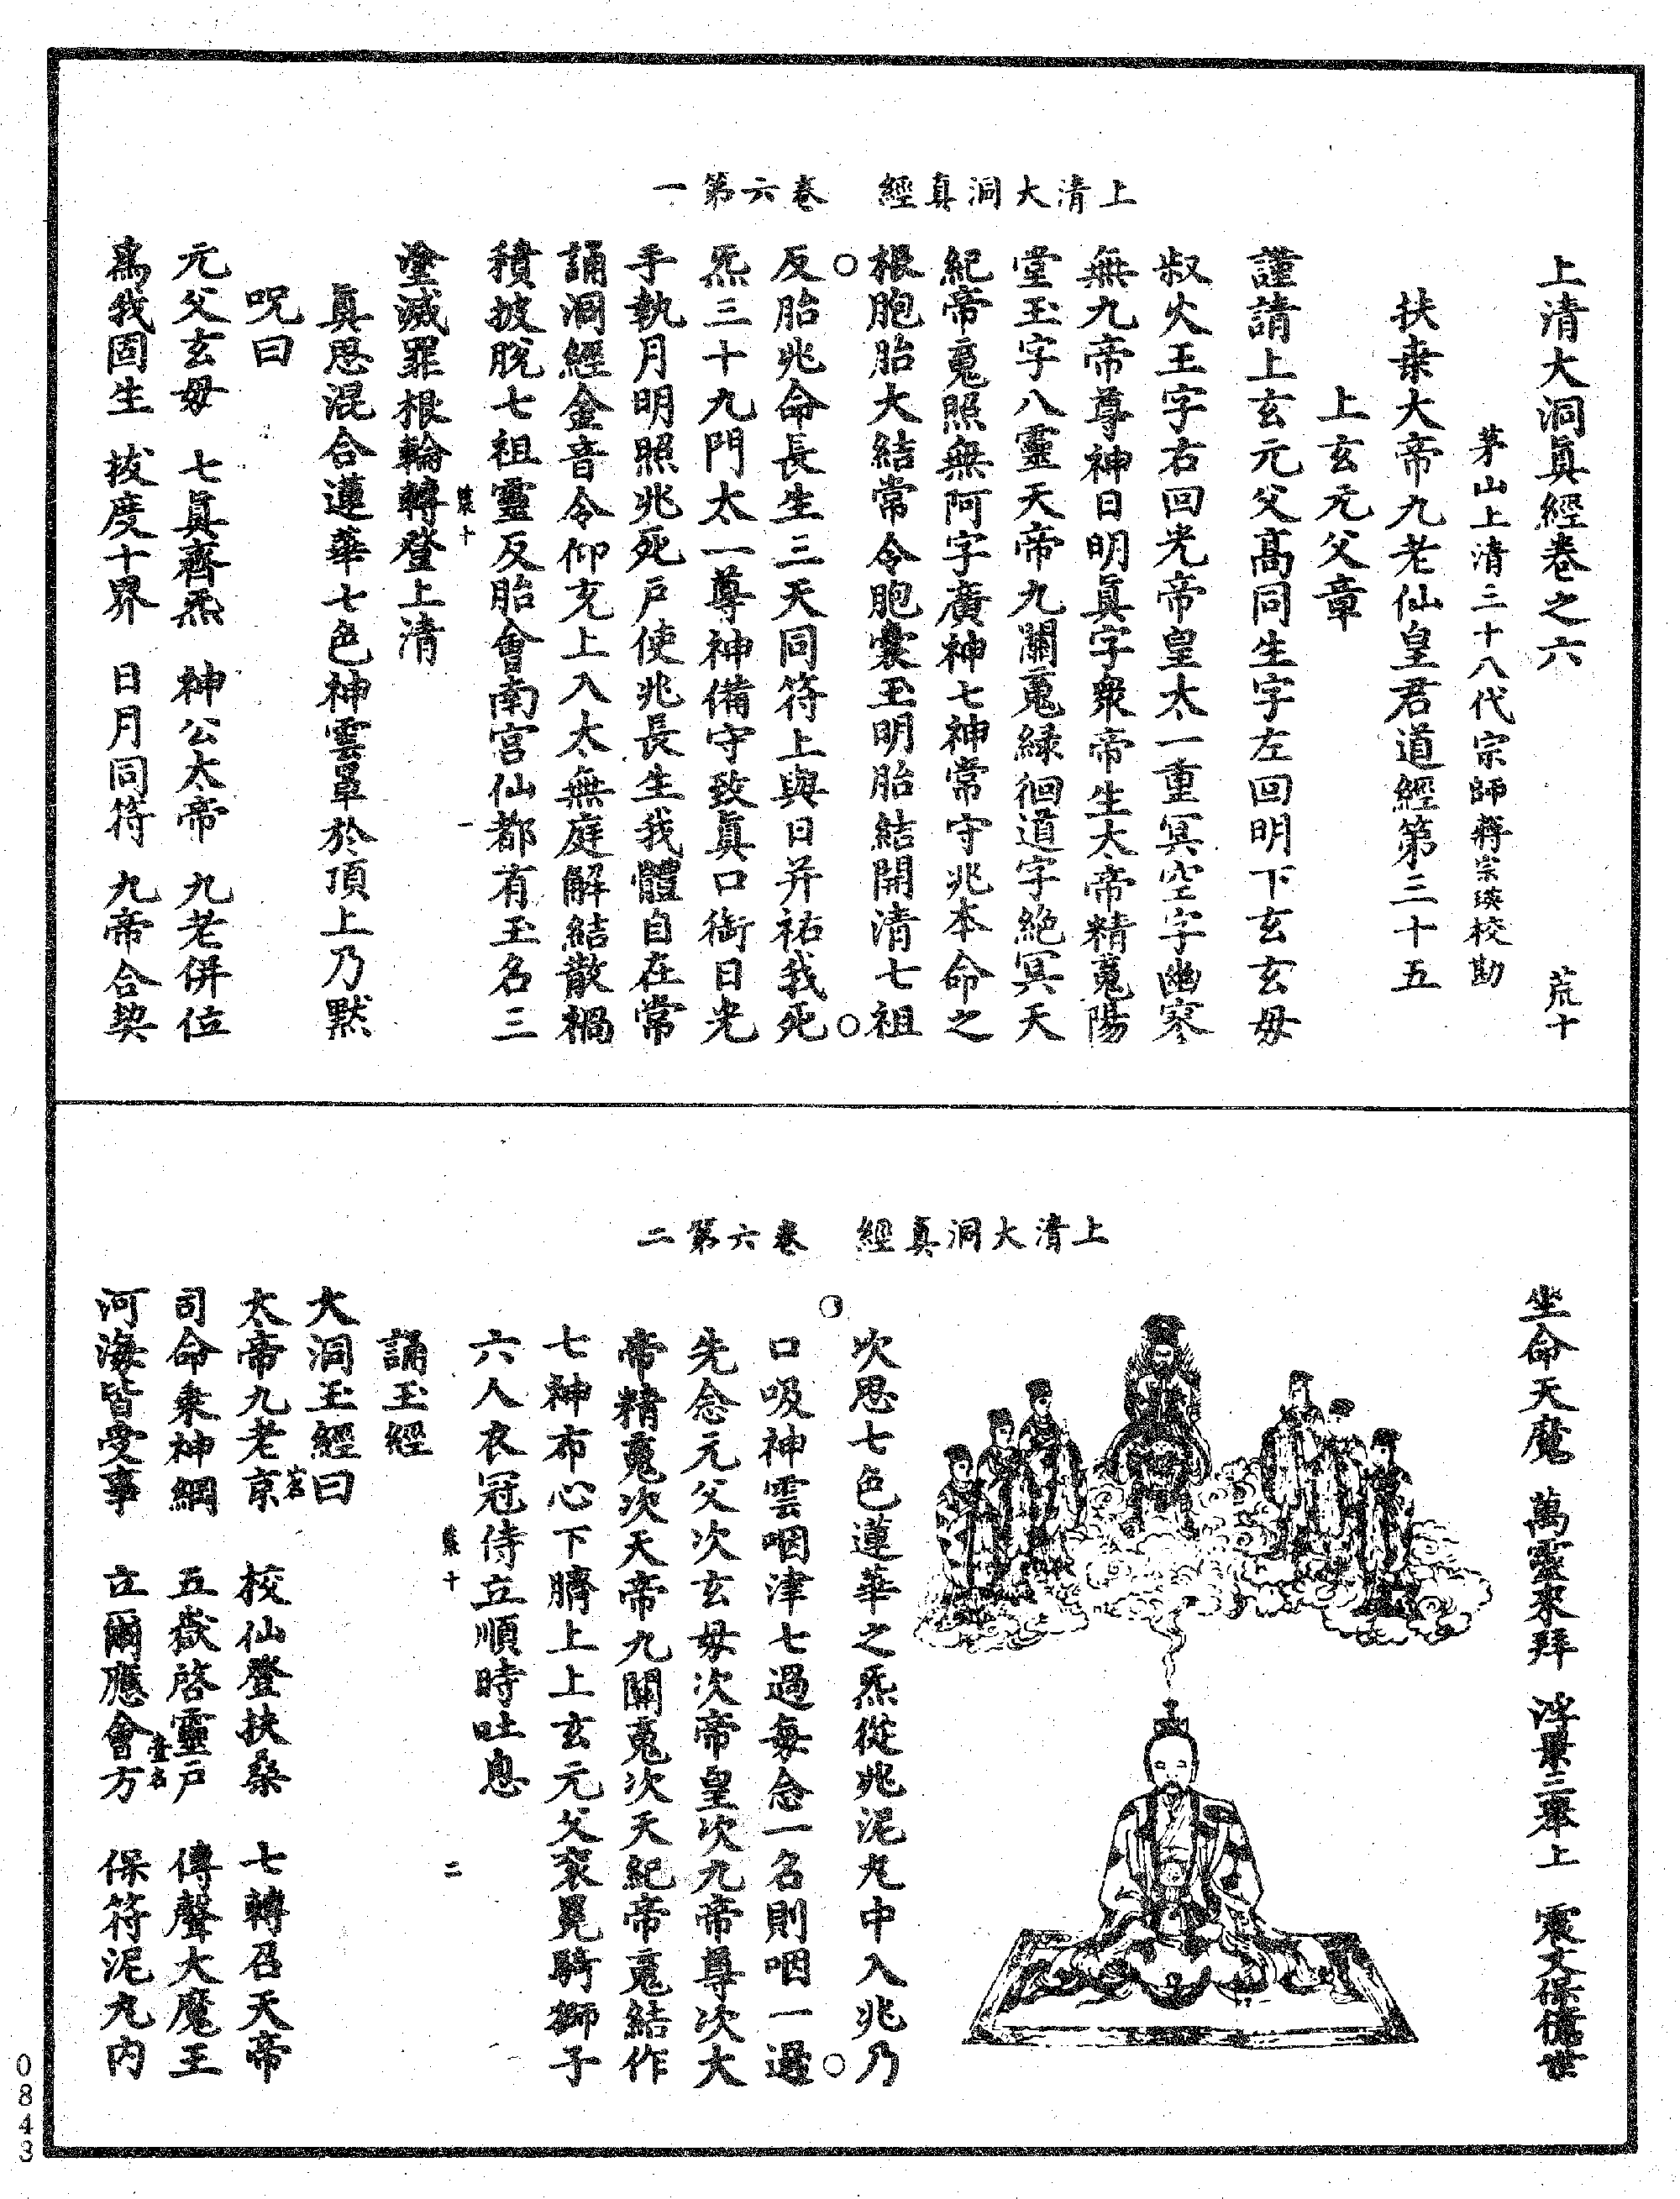 上清大洞真經　卷六第一
上清大洞眞經卷之六　荒十
茅山上清三十八代宗師蔣宗瑛校勘
扶桒大帝九老仙皇君道經第三十五
上玄元父章
謹請上玄元父髙同生字左回明下玄玄毋
叔火王字右回光帝皇太一重冥空字幽寥
無九帝尊神日明眞字衆帝生太帝精䰟陽
堂玉字八靈天帝九關䰟緑徊道字絶冥天
紀帝䰟照無阿字廣神七神常守兆本命之
根胞胎大結常令胞囊玉明胎結開清七祖
反胎兆命長生三天同符上與日并祐我死
炁三十九門太一尊神備守致眞口銜日光
手執月明照兆死戸使兆長生我體自在常
誦洞經金音令仰充上入太無庭解結散禍
積披脫七祖靈反胎會南宫仙都有玉名三
塗滅罪根輪轉登上清
荒十　一
眞思混合蓮華七色神雲罩於頂上乃默
呪曰
元父玄毋　七眞齊炁　神公太帝　九老併位
爲我固生　拔度十界　日月同符　九帝合契
上清大洞真經　卷六第二
坐命天魔　萬靈來拜　浮景三舉上　震文保億世
次思七色蓮華之炁從兆泥丸中入兆乃
口吸神雲咽津七過每念一名則咽一過
先念元父次玄毋次帝皇次九帝尊次太
帝精䰟次天帝九關䰟次天紀帝䰟結作
七神布心下臍上上玄元父衮冕騎獅子
六人衣冠侍立順時吐息
荒十　二
誦玉經
大洞玉經曰
太帝九老京　校仙登扶桑　七轉召天帝
司命乘神綱　五嶽啓靈戸　傳聲大魔王
河海皆受事　立爾應會方　保符泥丸内
0843